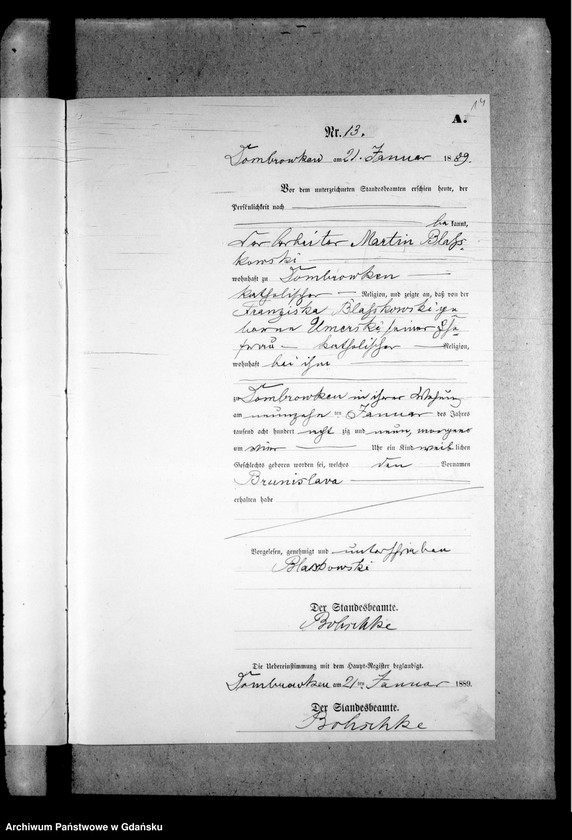 14
A.
Nr. 13.
Dombrowken am 21. Januar 1889.
Vor dem unterzeichneten Standesbeamten erschien heute, der
Persönlichkeit nach
bekannt,
der Arbeiter Martin Blass-
kowski
wohnhaft zu Dombrowken
katholischer Religion, und zeigte an, daß von der
Franziska Blasskowski ge-
borne Umerski seiner Ehe-
frau katholischer Religion,
wohnhaft bei ihm
zu Dombrowken in ihrer Wohnung
am neunzehnten Januar des Jahres
tausend acht hundert acht zig und neun, morgens
um vier Uhr ein Kind weiblichen
Geschlechts geboren worden sei, welches den Vornamen
Brunislava
erhalten habe
Vorgelesen, genehmigt und unterschrieben
Blaskowski
Der Standesbeamte.
Bohschke
Die Uebereinstimmung mit dem Haupt-Register beglaubigt.
Dombrowken am 21ten Januar 1889.
Der Standesbeamte.
Bohschke
Archiwum Państwowe w Gdańsku